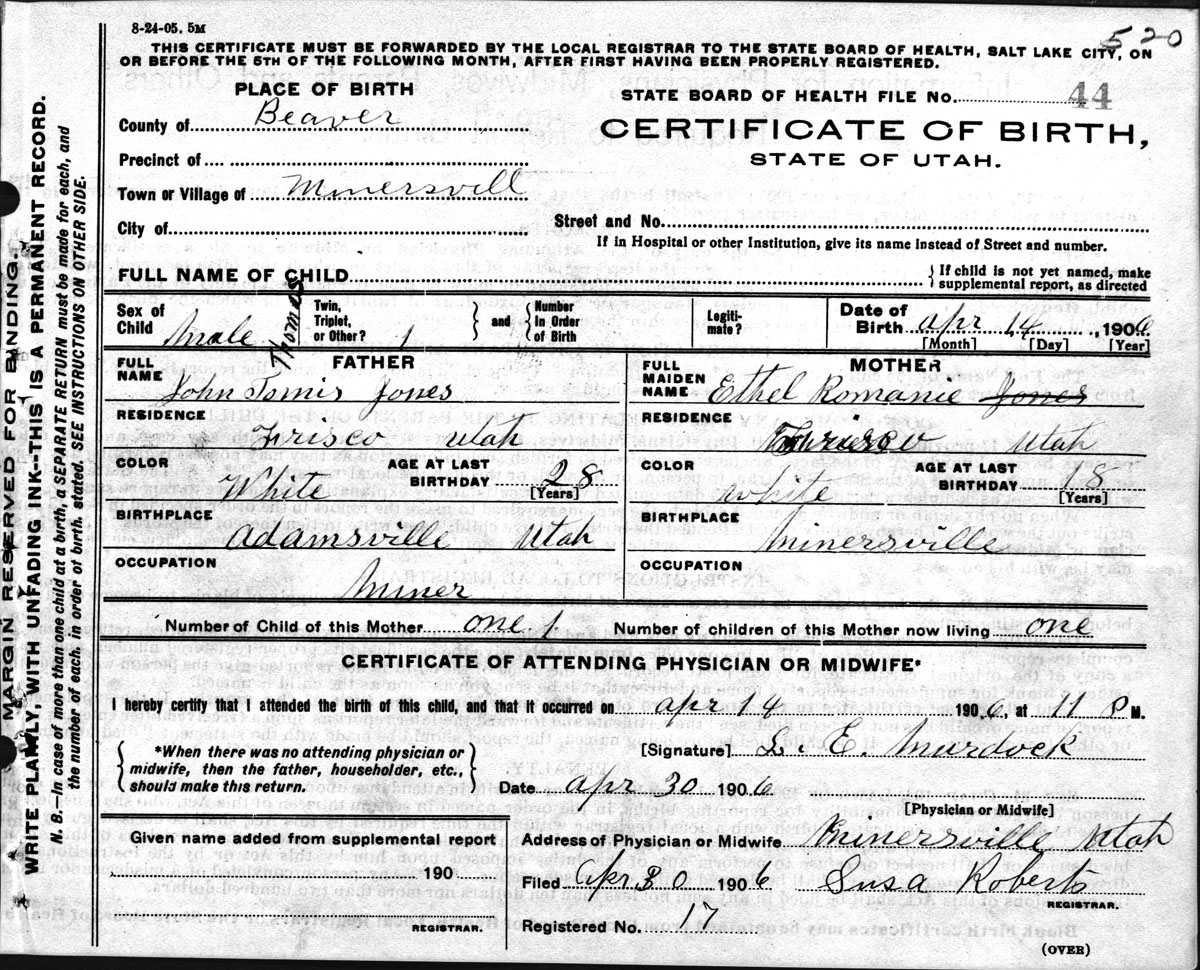 8-24-05. 5M
520
THIS CERTIFICATE MUST BE FORWARDED BY THE LOCAL REGISTRAR TO THE STATE BOARD OF HEALTH, SALT LAKE CITY, ON
OR BEFORE THE 5TH OF THE FOLLOWING MONTH, AFTER FIRST HAVING BEEN PROPERLY REGISTERED.
MARGIN RESERVED FOR BINDING.
WRITE PLAINLY, WITH UNFADING INK--THIS IS A PERMANENT RECORD.
N. B. In case of more than one child at a birth, a SEPARATE RETURN must be made for each, and
the number of each, in order of birth, stated. SEE INSTRUCTIONS ON OTHER SIDE.
PLACE OF BIRTH
STATE BOARD OF HEALTH FILE No. 44
County of Beaver
CERTIFICATE OF BIRTH,
STATE OF UTAH.
Precinct of
Town or Village of Minersvill
City of
Street and No.
If in Hospital or other Institution, give its name instead of Street and number.
FULL NAME OF CHILD
} If child is not yet named, make
supplemental report, as directed
Sex of Child male
Twin, Triplet, or Other? 1
and { Number In Order of Birth
Legiti-mate?
Date of Birth apr 14, 1906
[Month] [Day] [Year]
FATHER
Thomas
FULL NAME John Tomis Jones
RESIDENCE
Frisco Utah
COLOR White
AGE AT LAST BIRTHDAY 28
[Years]
BIRTHPLACE
Adamsville Utah
OCCUPATION
Miner
MOTHER
FULL MAIDEN NAME Ethel Romanie Jones
RESIDENCE
Utah
COLOR white
AGE AT LAST BIRTHDAY 18
[Years]
BIRTHPLACE
Minersville
OCCUPATION
Number of Child of this Mother one 1 Number of children of this Mother now living one
CERTIFICATE OF ATTENDING PHYSICIAN OR MIDWIFE*
I hereby certify that I attended the birth of this child, and that it occurred on apr 14 1906, at 11 P M.
{ *When there was no attending physician or
midwife, then the father, householder, etc.,
should make this return. }
[Signature] L. E. Murdock
Date apr 30 1906
[Physician or Midwife]
Given name added from supplemental report
190
REGISTRAR.
Address of Physician or Midwife Minersville Utah
Filed Apr 30 1906 Susa Roberts
REGISTRAR.
Registered No. 17
(OVER)